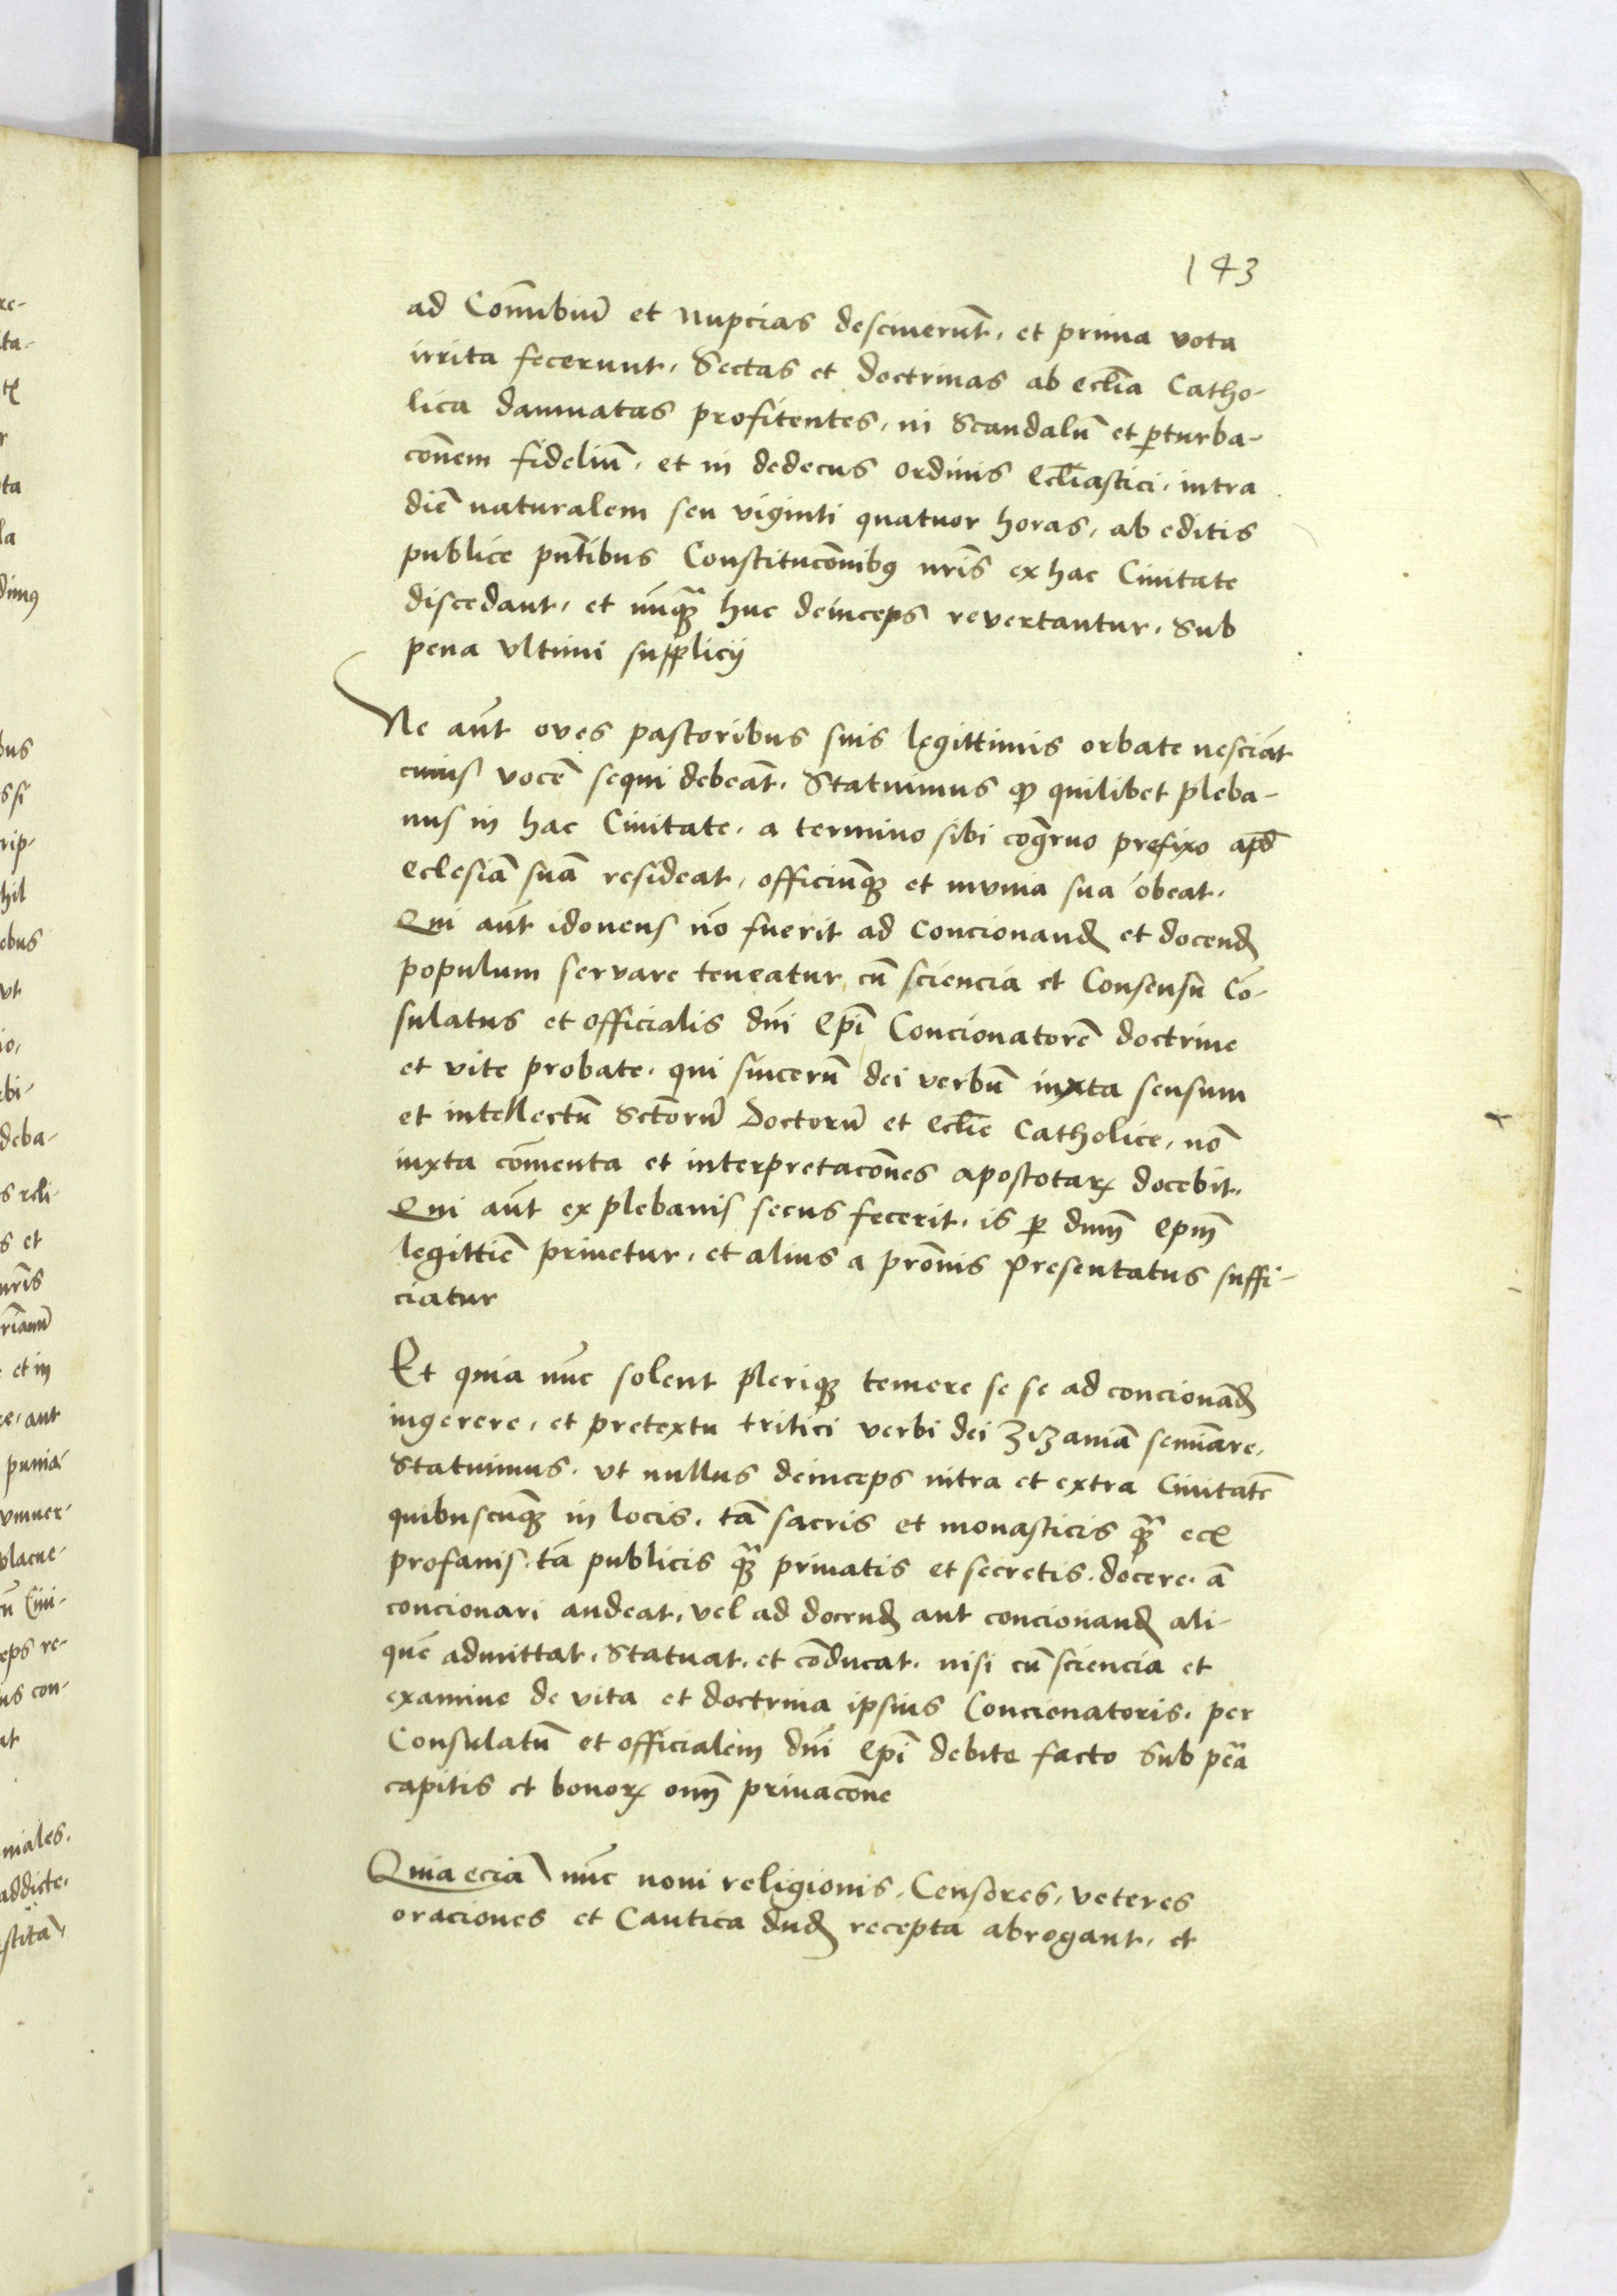 143
ad Cōnubiū et nupcias desciuerūt, et prima vota
irrita fecerunt, Sectas et doctrinas ab ecl̄ia Catho-
lica damnatas profitentes, in Scandalū et ꝑturba-
cōnem fideliū, et in dedecus ordinis Eccl̄iastici, intra
diē naturalem seu viginti quatuor horas, ab editis
publice pn̄tibus Constitucōnibꝰ nr̄is ex hac Ciuitate
discedant, et nūqꝫ̄ huc deinceps revertantur, Sub
pena vltimi supplicij
Ne aūt oves pastoribus suis legittimis orbate nesciāt
cuius vocē sequi debeāt, Statuimus ꝙ quilibet pleba-
nus in hac Ciuitate, a termino sibi cōgruo prefixo apd̄
eclesiā suā resideat, officiūqꝫ et mvnia sua obeat.
Qui aūt idoneus nō fuerit ad concionand̄ et docend̄
populum servare teneatur cū sciencia et Consensu Cō-
sulatus et officialis dn̄i Ep̄i Concionatorē doctrine
et vite probate, qui sincerū dei verbū iuxta sensum
et intellectū Sctōrū Doctorū et Ecl̄ie Catholice, nō
iuxta cōmenta et interpretacōnes apostotaꝝ docebit.
Qui aūt ex plebanis secus fecerit, is ꝑ dn̄m Ep̄m
legittīe priuetur, et alius a prōnis presentatus suffi-
ciatur
Et quia nūc solent pleriqꝫ temere se se ad concionād̄
ingerere, et pretextu tritici verbi dei ZiZaniā semīare,
Statuimus, vt nullus deinceps intra et extra Ciuitatē
quibuscūqꝫ in locis, tā sacris et monasticis qꝫ̄ ecī
profanis, tā publicis qꝫ̄ priuatis et secretis, docere, ā
concionari audeat, vel ad docend̄ aut concionand̄ ali-
quē admittat, Statuat, et cōducat, nisi cū sciencia et
examine de vita et doctrina ipsius Concionatoris, per
Consulatū et officialem dn̄i Ep̄i debite facto Sub pēa
capitis et bonoꝝ om̄ priuacōne
Quia eciā nūc noui religionis, Censores, veteres
oraciones et Cantica dud̄ recepta abrogant, et